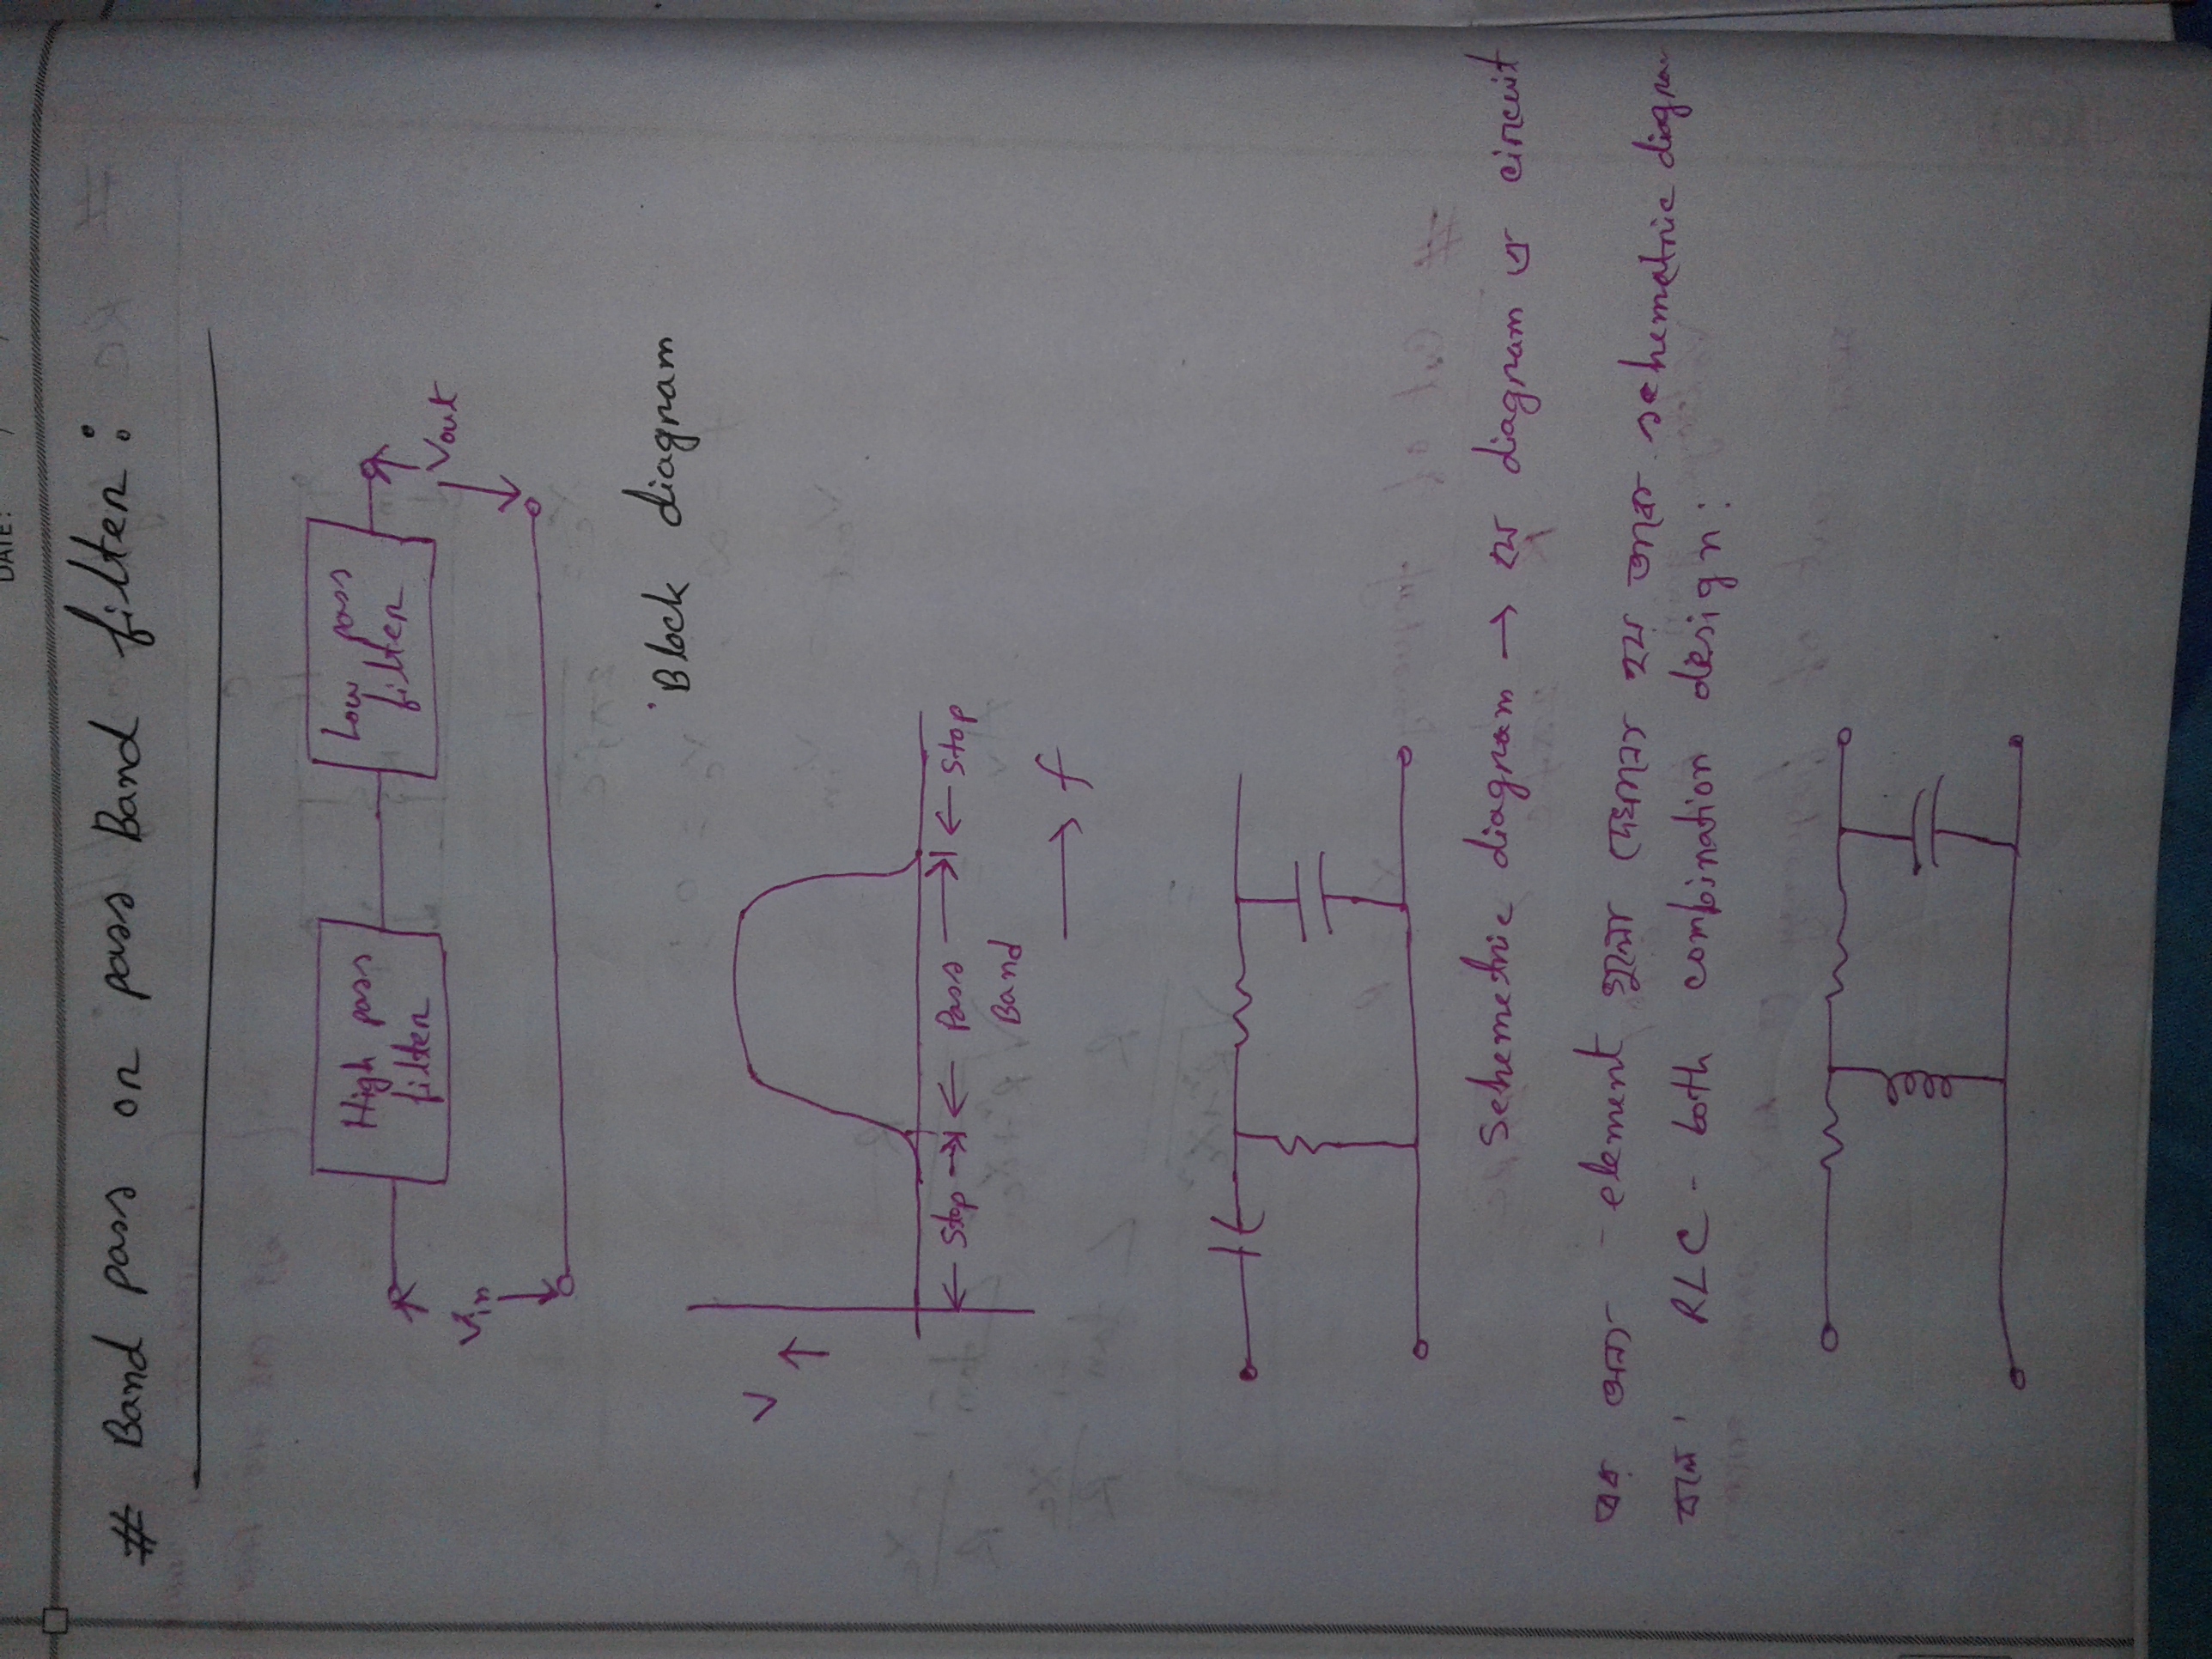 DATE: / /
# Band pass or pass Band filter :
High pass
filter
Low pass
filter
Vin
Vout
Block diagram
V
Stop
Pass
Stop
Band
f
Schemetric diagram → যে diagram এ circuit
এর অন্য element গুলো দেখানো হয় তাকে schemetric diagram
বলে। RLC - both combination design :